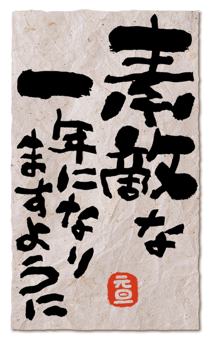 素敵な
一年になり
ますように
元旦